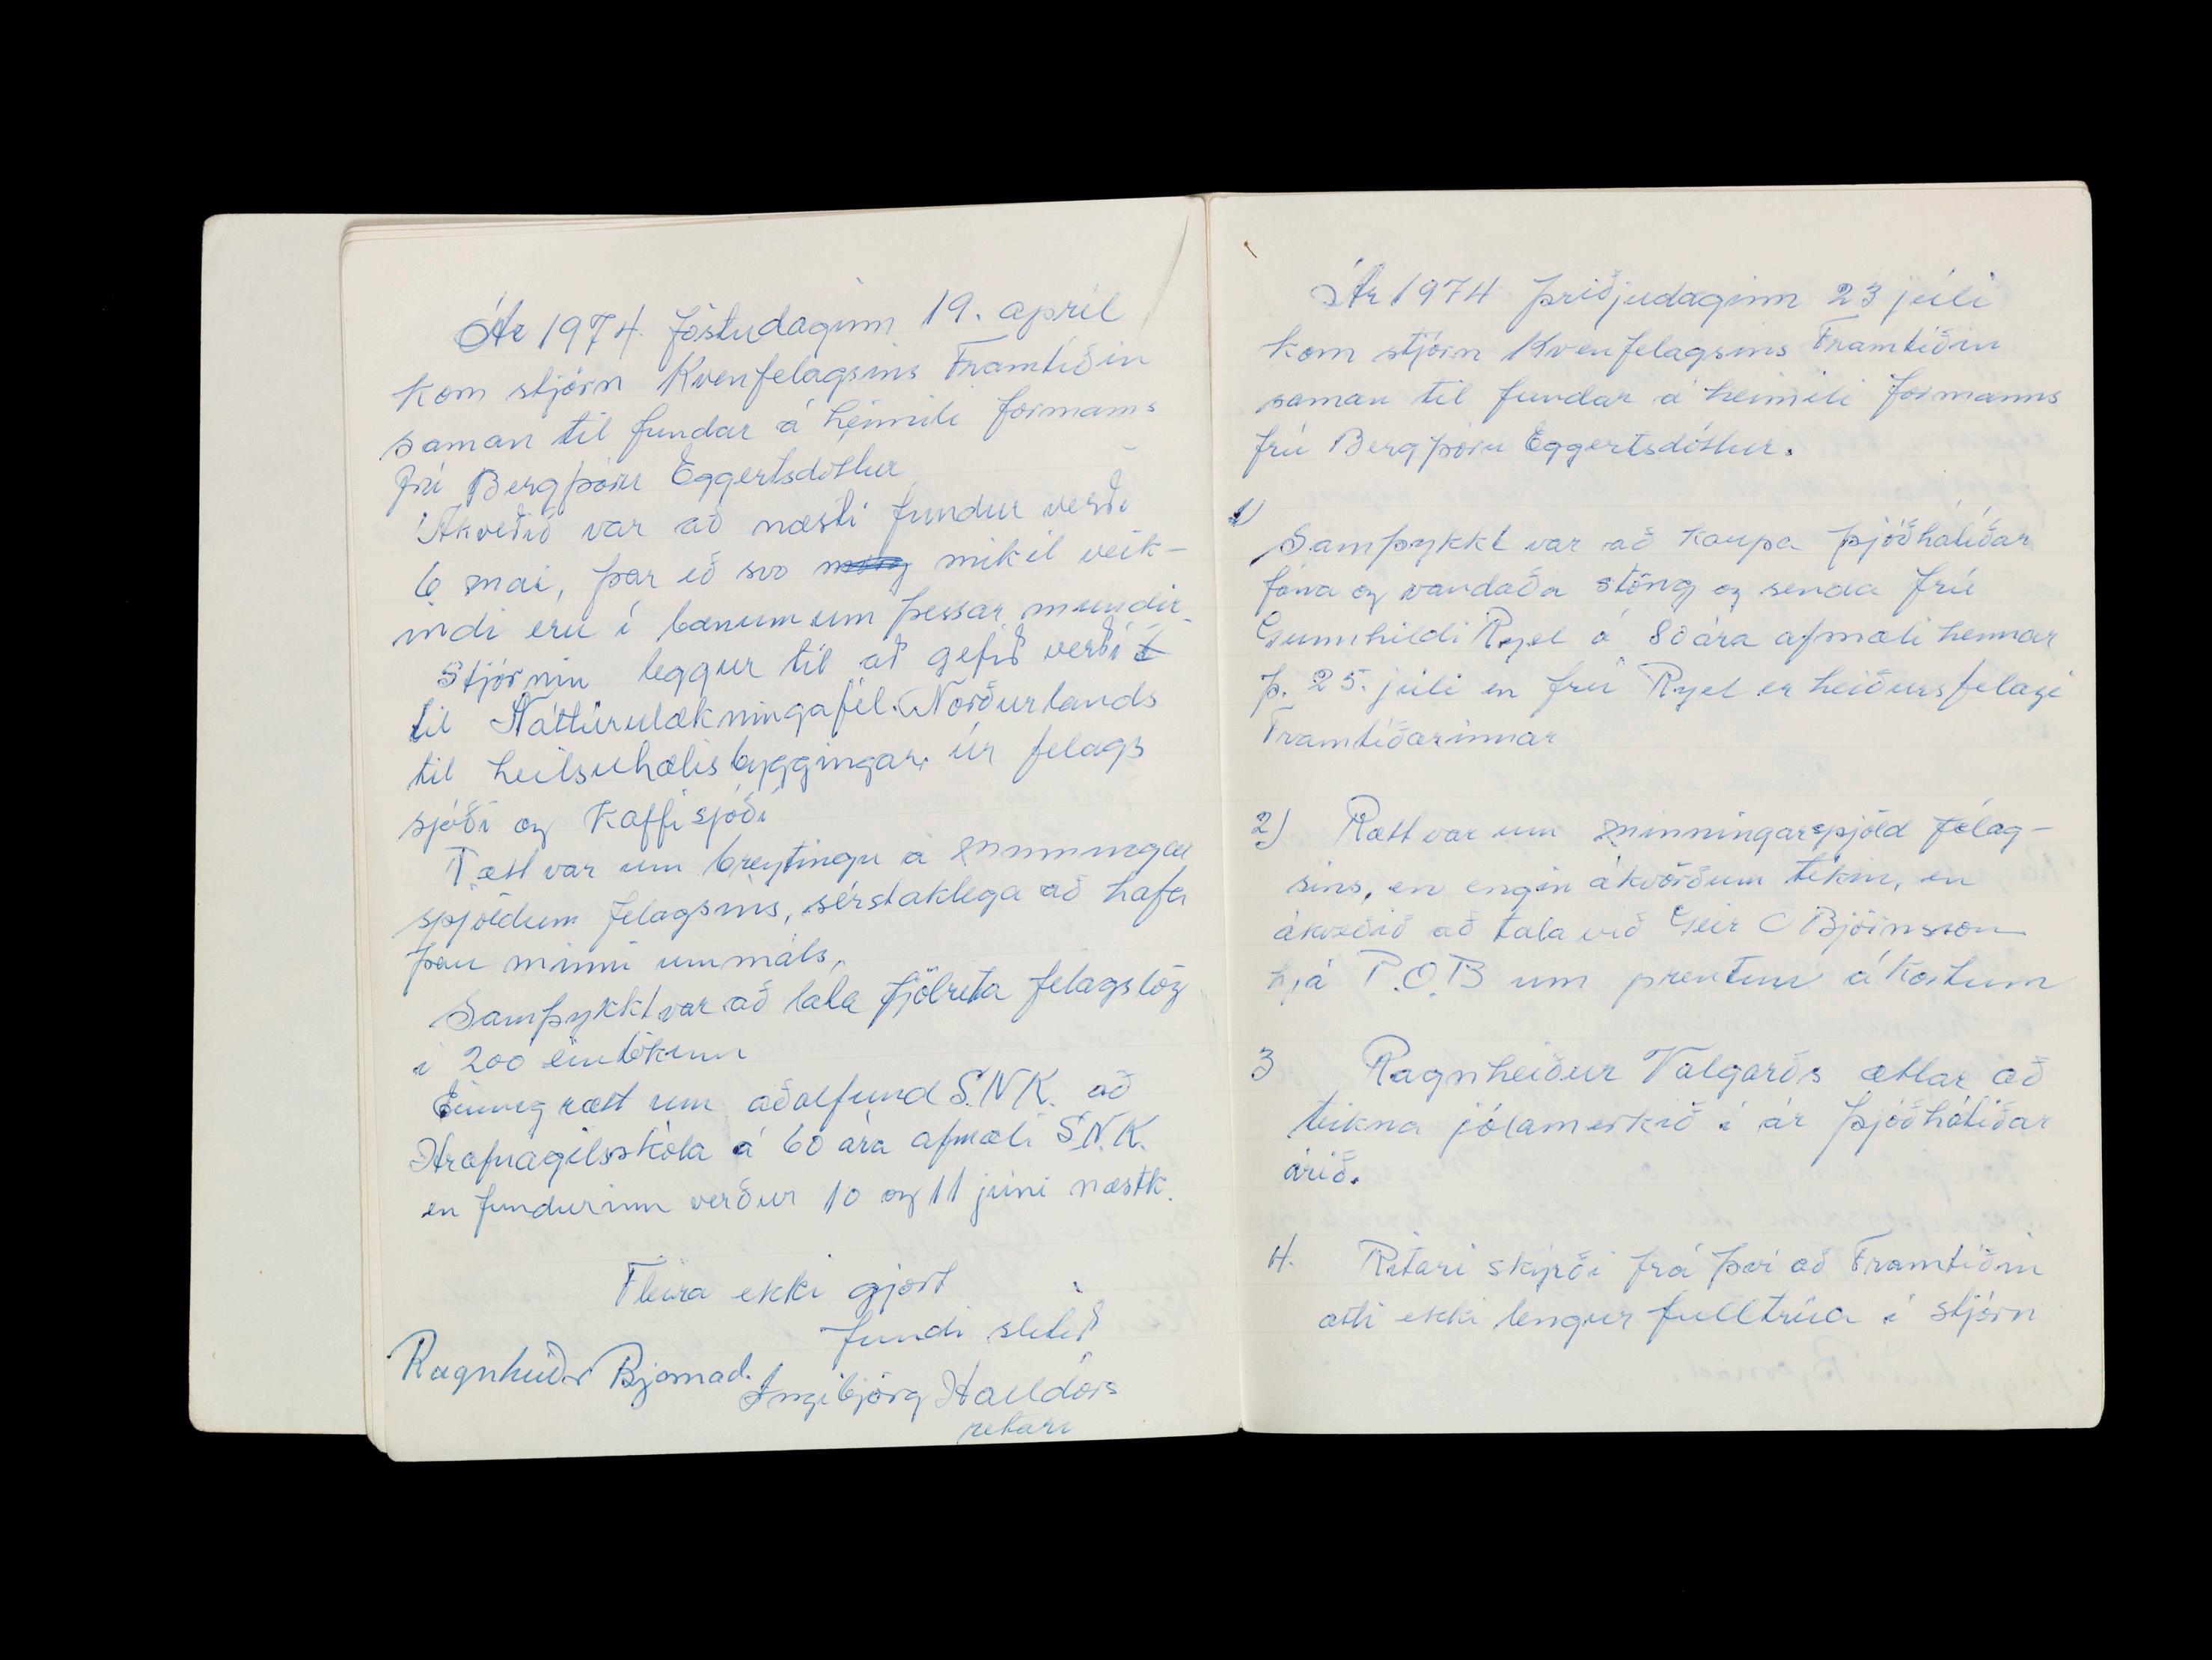 Ár 1974. föstudaginn 19. apríl
kom stjórn Kvenfelagsins Framtíðin
saman til fundar á heimili formanns
frú Bergþóru Eggertsdóttur
Ákveðið var að næsti fundur verði
6 maí, þar eð svo mörg mikil veik-
indi eru í bænum um þessar mundir.
Stjórnin leggur til að gefið verði t
til Náttúrulækningafél. Norðurlands
til heilsuhælisbyggingar. úr felags
sjóði og Kaffisjóði
Rætt var um breytingu á minningar
spjöldum felagsins, sérstaklega að hafa
þau minni ummáls.
Samþykkt var að láta fjölrita felagslög
í 200 eintökum
Einnig rætt um aðalfund S.N.K. að
Hrafnagilsskóla á 60 ára afmæli S.N.K.
en fundurinn verður 10 og 11 júní næstk.
Fleira ekki gjört
fundi slitið
Ragnheiður Bjarnad. Ingibjörg Halldórs
ritari
Ár 1974 þriðjudaginn 23 júlí
kom stjórn Kvenfelagsins Framtíðin
saman til fundar á heimili formanns
frú Bergþóru Eggertsdóttur.
1) Samþykkt var að kaupa þjóðhátíðar
fána og vandaða stöng og senda frú
Gunnhildi Ryel á 80 ára afmæli hennar
þ. 25. júlí en frú Ryel er heiðursfelagi
Framtíðarinnar
2) Rætt var um minningarspjöld félag-
sins, en engin ákvörðum tekin, en
ákveðið að tala við Geir Björnsson
hjá P.O.B um prentun á kortum
3 Ragnheiður Valgarðs ætlar að
teikna jólamerkið í ár þjóðhátíðar
árið.
4. Ritari skýrði frá því að Framtíðin
ætti ekki lengur fulltrúa í stjórn